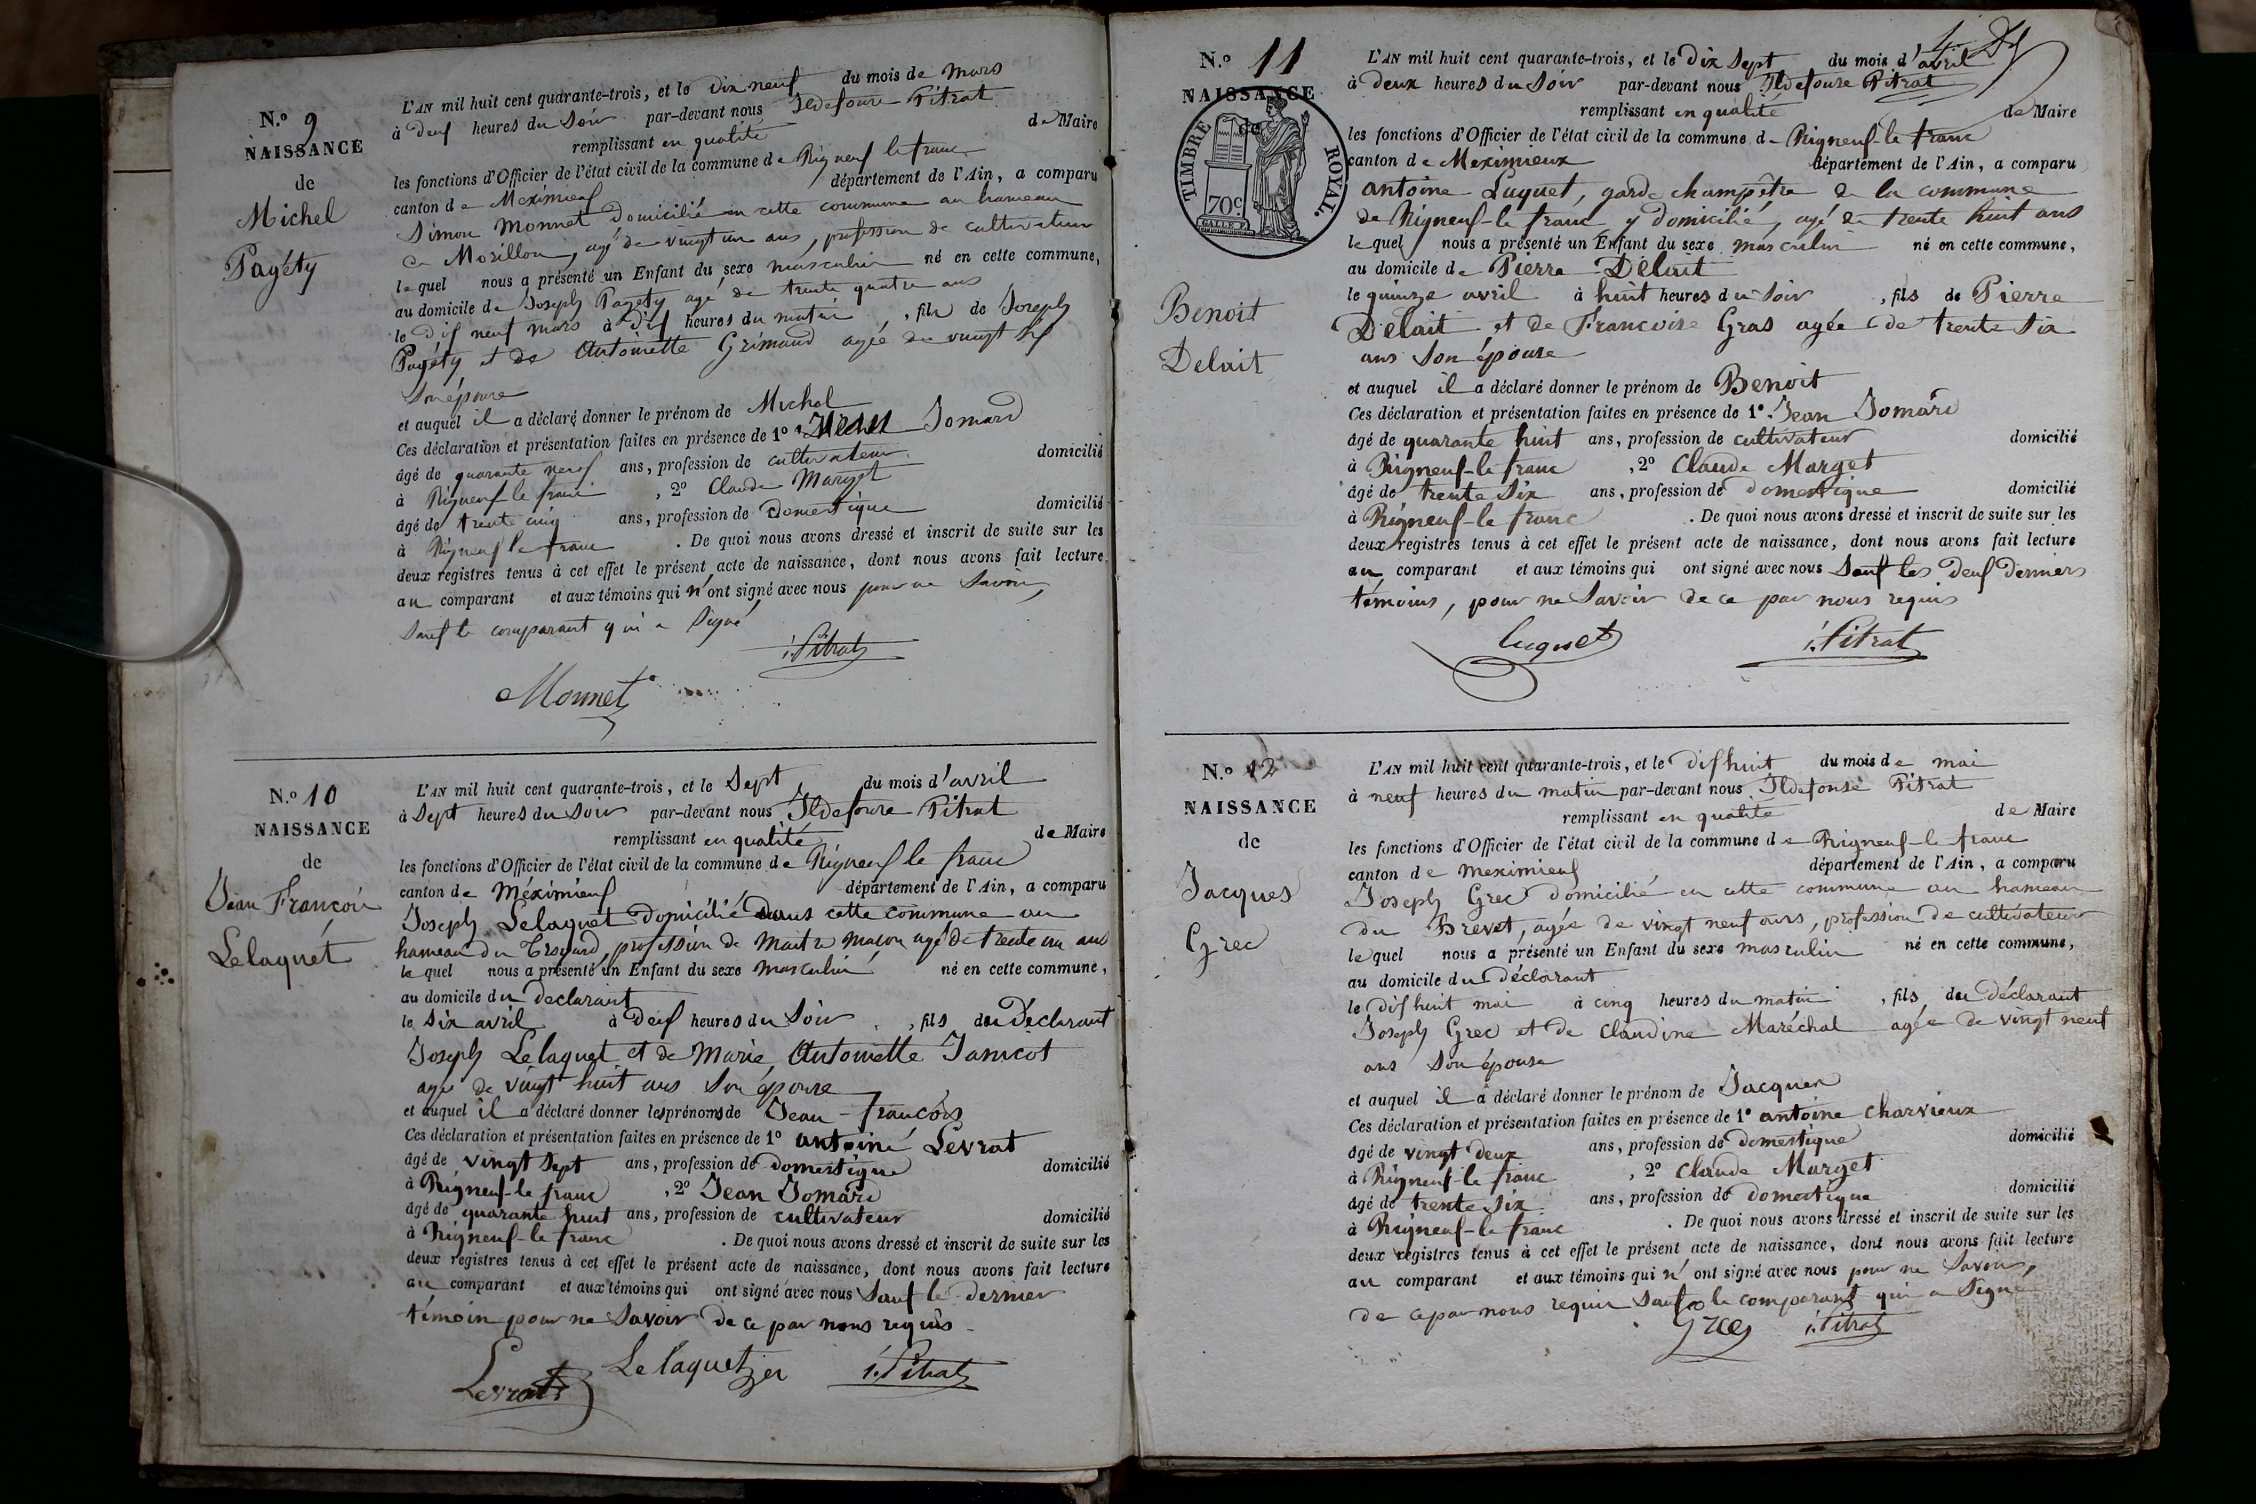 N.º 9
NAISSANCE
de
Michel
Pagéty
L'AN mil huit cent quarante-trois, et le dix neuf du mois de Mars
à deux heures du Soir par-devant nous Ildefonse Pitrat
remplissant en qualité de Maire
les fonctions d'Officier de l'état civil de la commune de Rigneux le franc
canton de Méximieux département de l'Ain, a comparu
Simon Monnet domicilié en cette commune au hameau
de Morillon, agé de vingt un ans, profession de cultivateur
lequel nous a présenté un Enfant du sexe masculin né en cette commune,
au domicile de Joseph Pagéty agé de trente quatre ans
le dix neuf mars à dix heures du matin, fils de Joseph
Pagéty et de Antoinette Grimaud agée de vingt six
Son épouse
et auquel il a déclaré donner le prénom de Michel
Ces déclaration et présentation faites en présence de 1º Jean Jomard
âgé de quarante neuf ans, profession de cultivateur domicilié
à Rigneux le franc, 2º Claude Marget
âgé de trente cinq ans, profession de domestique domicilié
à Rigneux le franc. De quoi nous avons dressé et inscrit de suite sur les
deux registres tenus à cet effet le présent acte de naissance, dont nous avons fait lecture
au comparant et aux témoins qui n'ont signé avec nous pour ne Savoir,
Sauf le comparant qui a Signé
i. Pitrat
Monnet
N.º 10
NAISSANCE
de
Jean François
Lelaquet
L'AN mil huit cent quarante-trois, et le Sept du mois d'avril
à Sept heures du Soir par-devant nous Ildefonse Pitrat
remplissant en qualité de Maire
les fonctions d'Officier de l'état civil de la commune de Rigneux le franc
canton de Méximieux département de l'Ain, a comparu
Joseph Lelaquet domicilié dans cette commune au
hameau du profession de Maitre maçon agé de trente un ans
lequel nous a présenté un Enfant du sexe masculin né en cette commune,
au domicile du declarant
le Six avril à deux heures du Soir, fils du Déclarant
Joseph Lelaquet et de Marie Antoinette Janicot
agée de vingt huit ans Son épouse
et auquel il a déclaré donner les prénoms de Jean-François
Ces déclaration et présentation faites en présence de 1º antoine Levrat
âgé de vingt Sept ans, profession de domestique domicilié
à Rigneux-le franc, 2º Jean Jomard
âgé de quarante huit ans, profession de cultivateur domicilié
à Rigneux-le franc. De quoi nous avons dressé et inscrit de suite sur les
deux registres tenus à cet effet le présent acte de naissance, dont nous avons fait lecture
au comparant et aux témoins qui ont signé avec nous Sauf le dernier
témoin pour ne Savoir de ce par nous requis
Levrat Lelaquet i. Pitrat
N.º 11
NAISSANCE
de
TIMBRE ROYAL.
70c
Benoit
Delait
L'AN mil huit cent quarante-trois, et le dix Sept du mois d'avril
à deux heures du Soir par-devant nous Ildefonse Pitrat
remplissant en qualité de Maire
les fonctions d'Officier de l'état civil de la commune de Rigneux-le franc
canton de Meximieux département de l'Ain, a comparu
antoine Luquet, garde champêtre de la commune
de Rigneux-le franc y domicilié, agé de trente huit ans
lequel nous a présenté un Enfant du sexe masculin né en cette commune,
au domicile de Pierre Delait
le quinze avril à huit heures du Soir, fils de Pierre
Delait et de Francoise Gras agée de trente Six
ans Son épouse
et auquel il a déclaré donner le prénom de Benoit
Ces déclaration et présentation faites en présence de 1º Jean Jomard
âgé de quarante huit ans, profession de cultivateur domicilié
à Rigneux-le franc, 2º Claude Marget
âgé de trente Six ans, profession de domestique domicilié
à Rigneux-le franc. De quoi nous avons dressé et inscrit de suite sur les
deux registres tenus à cet effet le présent acte de naissance, dont nous avons fait lecture
au comparant et aux témoins qui ont signé avec nous Sauf les deux derniers
témoins, pour ne Savoir de ce par nous requis
Luquet i. Pitrat
N.º 12
NAISSANCE
de
Jacques
Grec
L'AN mil huit cent quarante-trois, et le dix huit du mois de mai
à neuf heures du matin par-devant nous Ildefonse Pitrat
remplissant en qualité de Maire
les fonctions d'Officier de l'état civil de la commune de Rigneux-le franc
canton de meximieux département de l'Ain, a comparu
Joseph Grec domicilié en cette commune au hameau
du Brevet, agée de vingt neuf ans, profession de cultivateur
lequel nous a présenté un Enfant du sexe masculin né en cette commune,
au domicile du déclarant
le dix huit mai à cinq heures du matin, fils du déclarant
Joseph Grec et de claudine Maréchal agée de vingt neuf
ans Son épouse
et auquel il a déclaré donner le prénom de Jacques
Ces déclaration et présentation faites en présence de 1º antoine charvieux
âgé de vingt deux ans, profession de domestique domicilié
à Rigneux-le franc, 2º Claude Marget
âgé de trente Six ans, profession de domestique domicilié
à Rigneux-le franc. De quoi nous avons dressé et inscrit de suite sur les
deux registres tenus à cet effet le présent acte de naissance, dont nous avons fait lecture
au comparant et aux témoins qui n'ont signé avec nous pour ne Savoir,
de ce par nous requis Sauf le comparant qui a Signé
Grec i. Pitrat